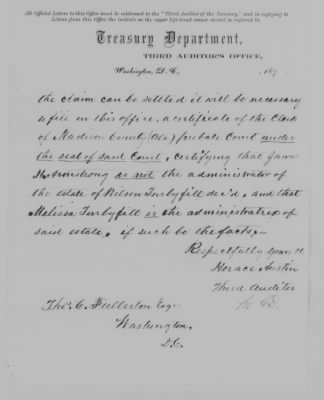 All Official Letters to this Office must be addressed to the "Third Auditor of the Treasury," and in replying to
Letters from this Office the Initials on the upper left-hand corner should be referred to.
Treasury Department,
THIRD AUDITOR'S OFFICE,
Washington, D. C., 187
the claim can be settled it will be necessary
to file in this office, a certificate of the Clerk
of Madison County (Ala) probate Court under
the seal of said Court, certifying that James
H Armstrong is not the administrator of
the estate of Wilson Turbyfill dec'd, and that
Melissa Turbyfill is the administratrix of
said estate, if such be the facts,
Respectfully Yours &
Horace Austin
Third Auditor
Thos. C. Fullerton Esqr
Washington.
D.C.